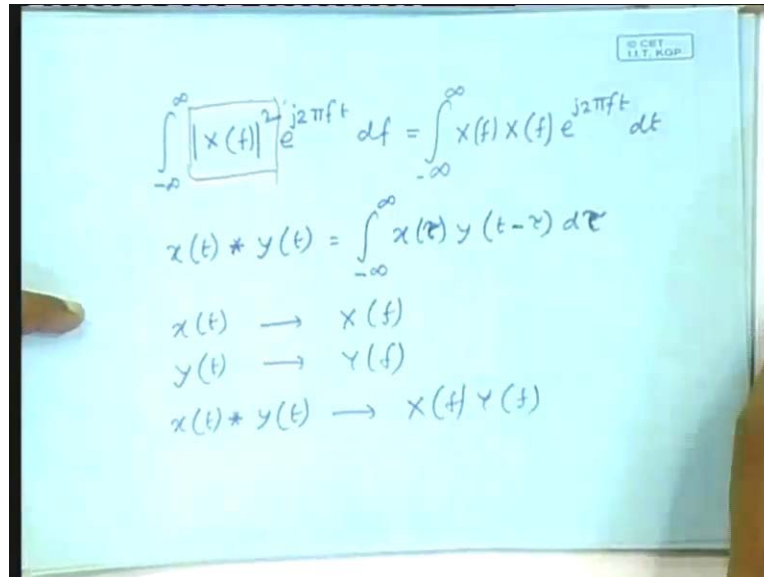 © CET
I.I.T. KGP
∫_{-∞}^{∞} |X(f)|² e^{j2πft} df = ∫_{-∞}^{∞} X(f) X(f) e^{j2πft} dt
x(t) * y(t) = ∫_{-∞}^{∞} x(τ) y(t-τ) dτ
x(t) → X(f)
y(t) → Y(f)
x(t) * y(t) → X(f) Y(f)